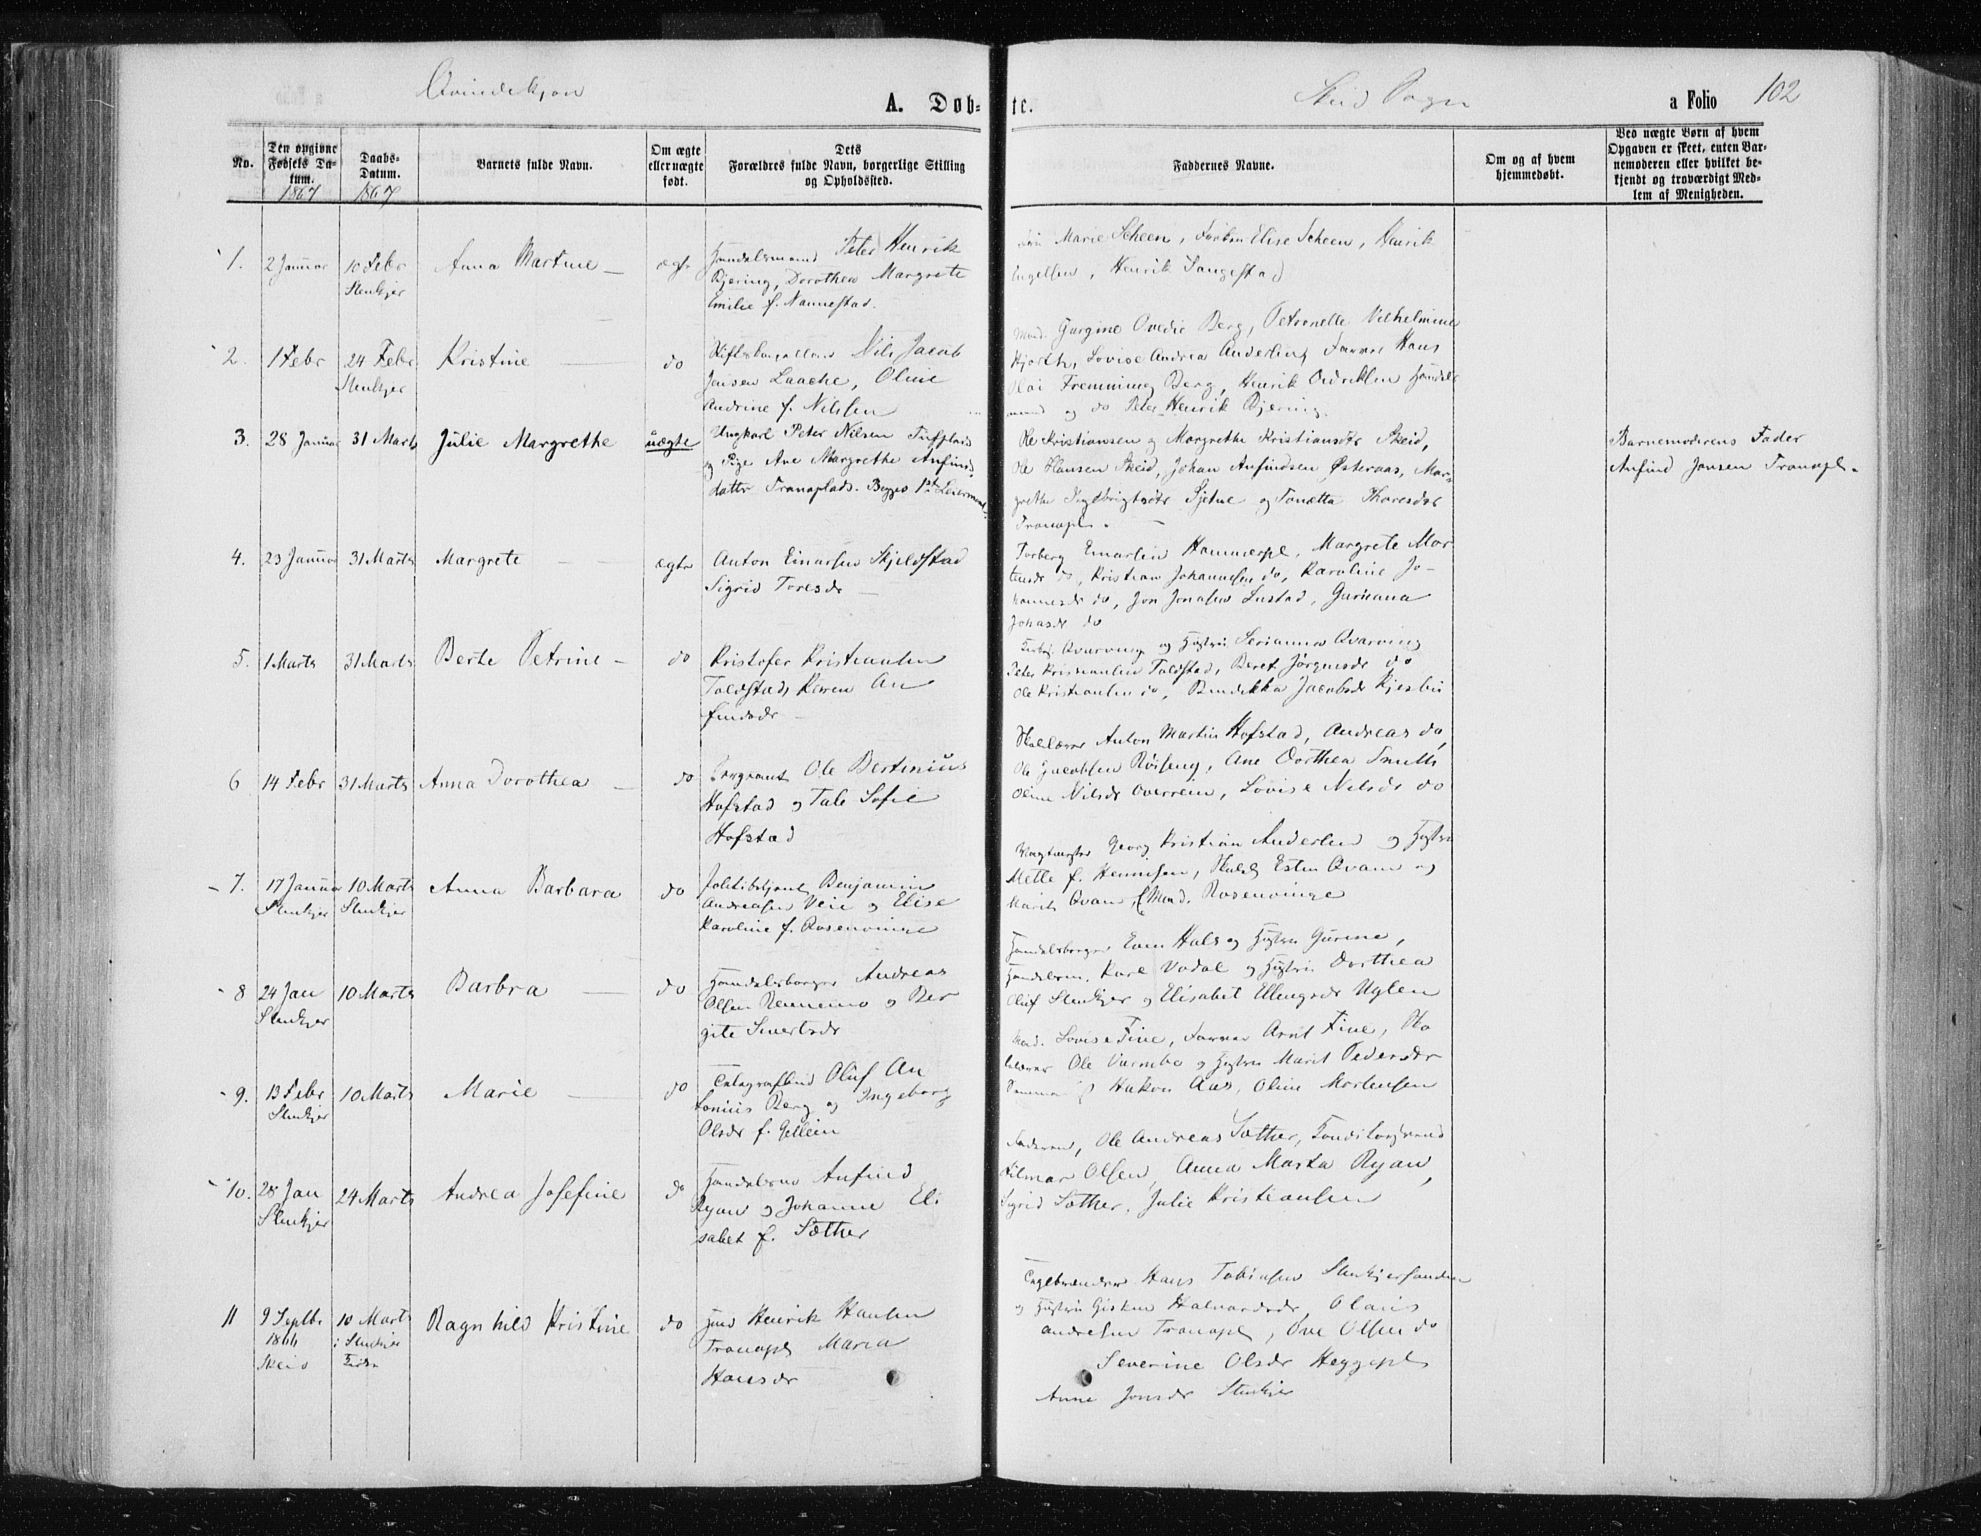 Qvindekjøn
A. Døb-
te.
Skeid Sogn
a Folio 102
No.
Den opgivne Fødsels Datum.
1867
Daabs-Datum.
1867
Barnets fulde Navn.
Om ægte eller uægte født.
Dets
Forældres fulde Navn, borgerlige Stilling
og Opholdssted.
Faddernes Navne.
Om og af hvem
hjemmedøbt.
Ved uægte Børn af hvem
Opgaven er skeet, enten Bar-
nemoderen eller hvilket be-
kjendt og troværdigt Med-
lem af Menigheden.
1. 2 Januar 10 Febr Anna Martine ægte Handelsmand Peter Henrik
Stenkjer Bjering, Dorothea Margrete
Emilie f. Nannestad.
Marie Scheen, Frøken Elise Scheen, Henrik
Engelsen, Henrik Langestad
2. 1 Febr 24 Febr Kristine do Nils Jacob
Stenkjer Jensen Laache, Oline
Andrine f. Nilsen
Mad. Gurgine Ovedie Berg, Petronelle Vilhelmine
Hjorth, Lovise Andrea Andersen, Farver Hans
Olai Fremming Berg, Henrik Didriksen Handels
mand og do Peter Henrik Bjering.
3. 28 Januar 31 Marts Julie Margrethe uægte Ungkarl Peter Nilsen
og Pige Ane Margrethe Anfinds
datter Tranaplads. Begges 1ste Leiermaal.
Ole Kristiansen og Margrethe Kristiansdtr Skeid,
Ole Hansen Skeid, Johan Anfindsen Østeraas, Mar-
grethe Ingebrigtsdtr Sjetne og Tonetta Thoresdtr
Tranapl.
Barnemoderens Fader
Anfind Jensen Tranapl.
4. 23 Januar 31 Marts Margrete ægte Anton Einarsen Skjeldstad
Sigrid Toresdr
Torberg Einarsen Hammerpl. Margrete Mor
tensdr do, Kristian Johannesen do, Karoline Jo-
hannesdr do, Jon Jonasen Lustad, Guruana
Johasdr do
5. 1 Marts 31 Marts Berte Petrine do Kristofer Kristiansen
Toldstad, Karen An
finsdr
Qvarving og Hustru Serianna Qvarving
Peter Kristiansen Toldstad, Beret Jørgensdr do
Ole Kristiansen do, Bendikka Jacobsdr Kjesbu
6 14 Febr 31 Marts Anna Dorothea do Sergeant Ole Bertinius
Hofstad og Tale Sofie
Hofstad
Skolelærer Anton Martin Hofstad, Andreas do,
Ole Jacobsen Røiseng, Ane Dorthea Smith
Oline Nilsdr Overrein, Lovise Nilsdr do
7. 17 Januar 10 Marts Anna Barbara do Politibetjent Benjamin
Stenkjer Stenkjer Andreasen Veie og Elise
Karoline f. Rosenvinge
Georg Kristian Andersen og Hustru
Mette f. Hennesen, Esten Qvam og
Marit Qvam, Mad. Rosenvinge
8 24 Jan 10 Marts Barbra do Handelsborger Andreas
Stenkjer Olsen Rennemo og Ber
gite Sivertsdr
Handelsborger Even Hals og Hustru Gurine,
Handelsm. Karl Vodal og Hustru Dorthea
Oluf Stenkjer og Elisabet Ellingsdr Uglen
9. 13 Febr 10 Marts Marie do Telegrafbud Oluf An
Stenkjer tonius Berg og Ingeborg
Olsdr f. Gellein
Mad. Lovise Fine, Farver Arnt Fine, Sko
lelærer Ole Varmbo og Hustru Marit Pedersdr
Hakon Aas, Oline Mortensen
10. 28 Jan 24 Marts Andrea Josefine do Handelsmd Anfind
Stenkjer Ryan og Johanne Eli
sabet f. Sæther
Faderen, Ole Andreas Sæther,
Hilmar Olsen, Anna Marta Ryan,
Sigrid Sæther, Julie Kristiansen
11 9 Septbr 10 Marts Ragnhild Kristine do Hmd Henrik Hansen
1866 i Stenkjer Tranapl Maria
Skeid Kirke Hansdr
Teglbrænder Hans Tobiasen Stenkjersanden
og Hustru Gisken Halvardsdr, Olaus
Andresen Tranapl, Ove Olsen do
Severine Olsdr Heggepl
Anne Jonsdr Stenkjer